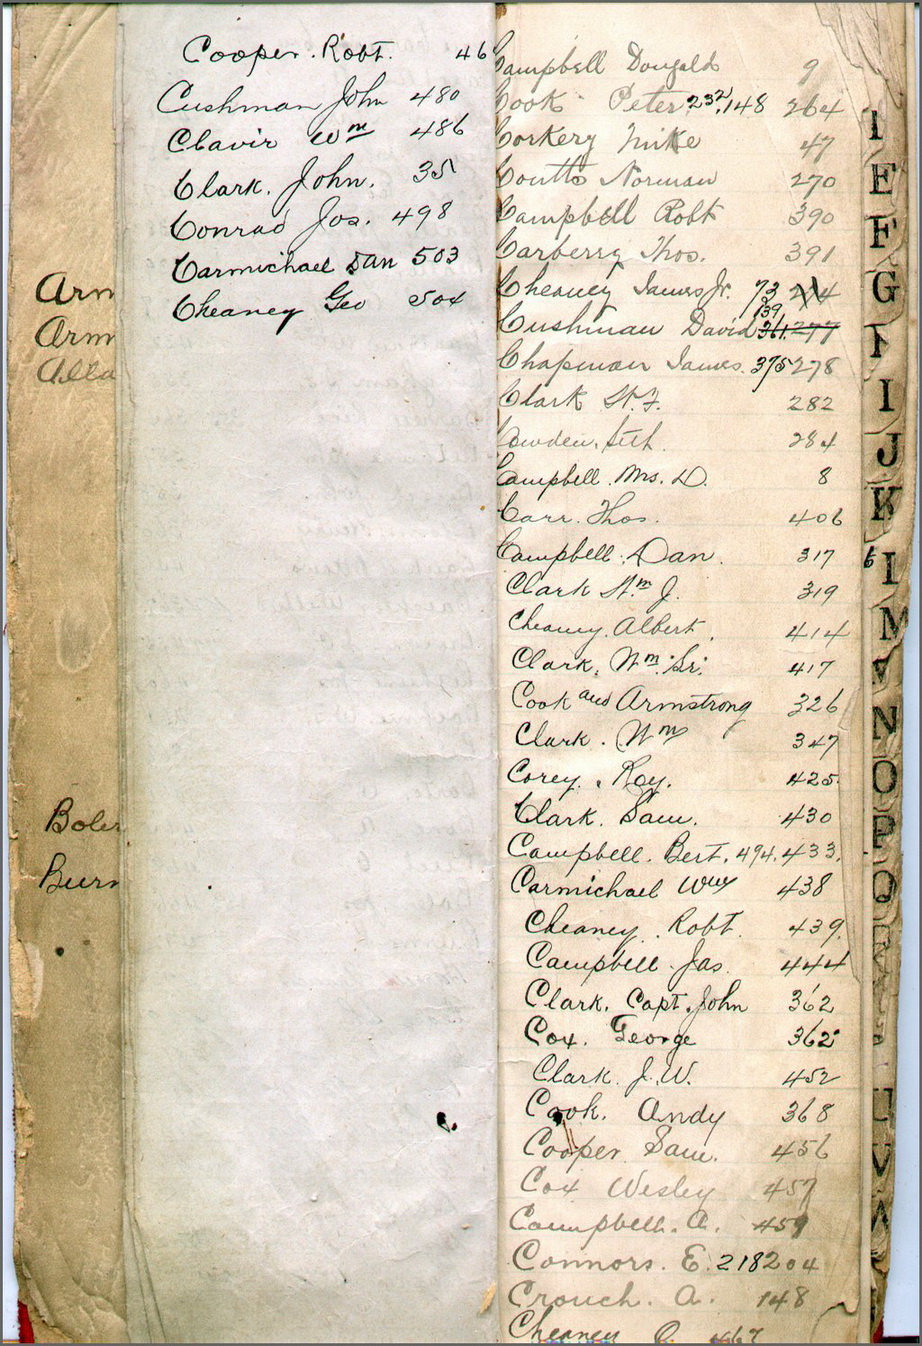 Arm
Arm
Alla
Boler
Burn
Cooper. Robt. 46
Cushman John 480
Clavir Wm 486
Clark. John. 35
Conrad Jos. 498
Carmichael Dan 503
Cheaney Geo 504
Campbell Dougald 9
Cook Peter 232, 148 264
Corkery Mike 47
Coutts Norman 270
Campbell Robt 390
Carberry Thos. 391
Cheaney James Jr. 73
139
Cushman David 361 277
Chapman James. 375 278
Clark 282
Cowden. 284
Campbell. Mrs. D. 8
Carr. Thos. 406
Campbell. Dan. 317
Clark Wm J. 319
Cheaney. Albert. 414
Clark. Wm. Sr. 417
Cook and Armstrong 326
Clark. Wm 347
Corey. Roy. 425
Clark. Sam. 430
Campbell. Bert. 494. 433.
Carmichael Wm 438
Cheaney. Robt. 439.
Campbell. Jas. 444
Clark. Capt. John 362
Cox. George 362
Clark. J. W. 452
Cook. Andy 368
Cooper. Sam. 456
Cox Wesley 457
Campbell. A. 459
Connors. E. 218 204
Crouch. A. 148
Cheaney 467
E
F
G
I
J
K
6
M
N
O
P
Q